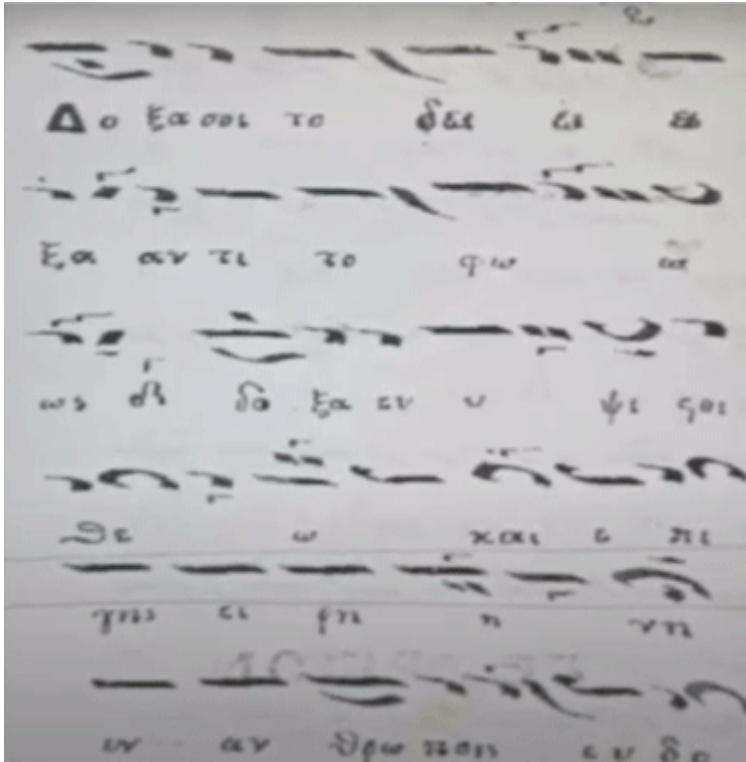 Δο ξα σοι το δει ει ει
ξα αν τι το φω ω
ως δο ξα εν υ ψι ςοι
Θε ω και ε πι
γης ει ρη η νη
εν αν θρω ποις ευ δο